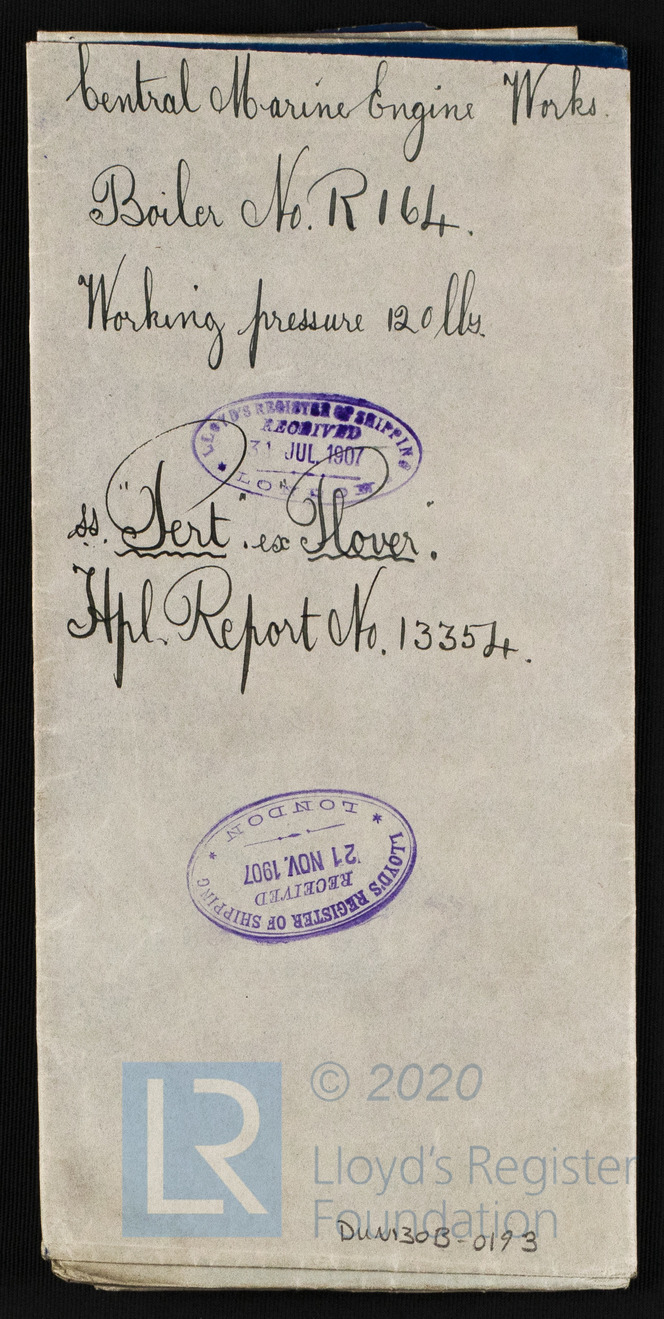 Central Marine Engine Works.
Boiler No. R 164.
Working pressure 120 lbs.
LLOYD'S REGISTER OF SHIPPING
RECEIVED
31 JUL. 1907
LONDON
ss. "Tert". ex "Plover".
Hpl. Report No. 13354.
LONDON
21 NOV. 1907
RECEIVED
LLOYD'S REGISTER OF SHIPPING
LR
© 2020
Lloyd's Register
Foundation
DUN130B-0193